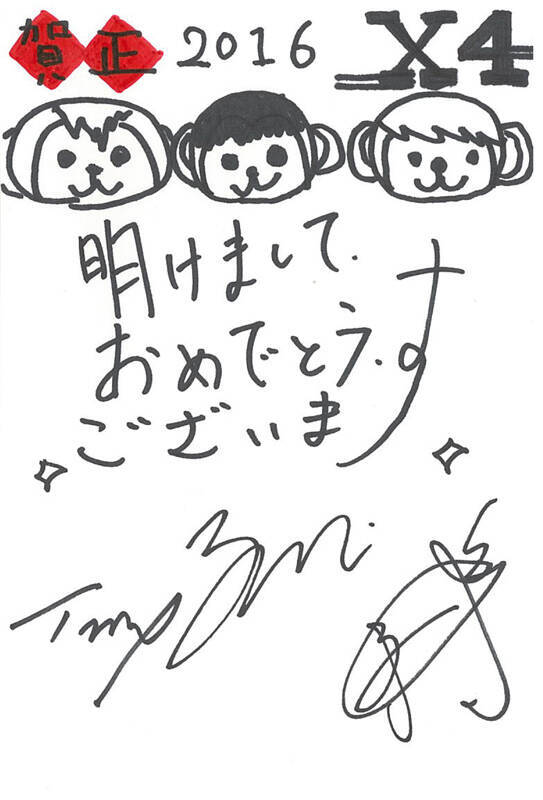 賀正 2016 X4
明けまして
おめでとう
ございます